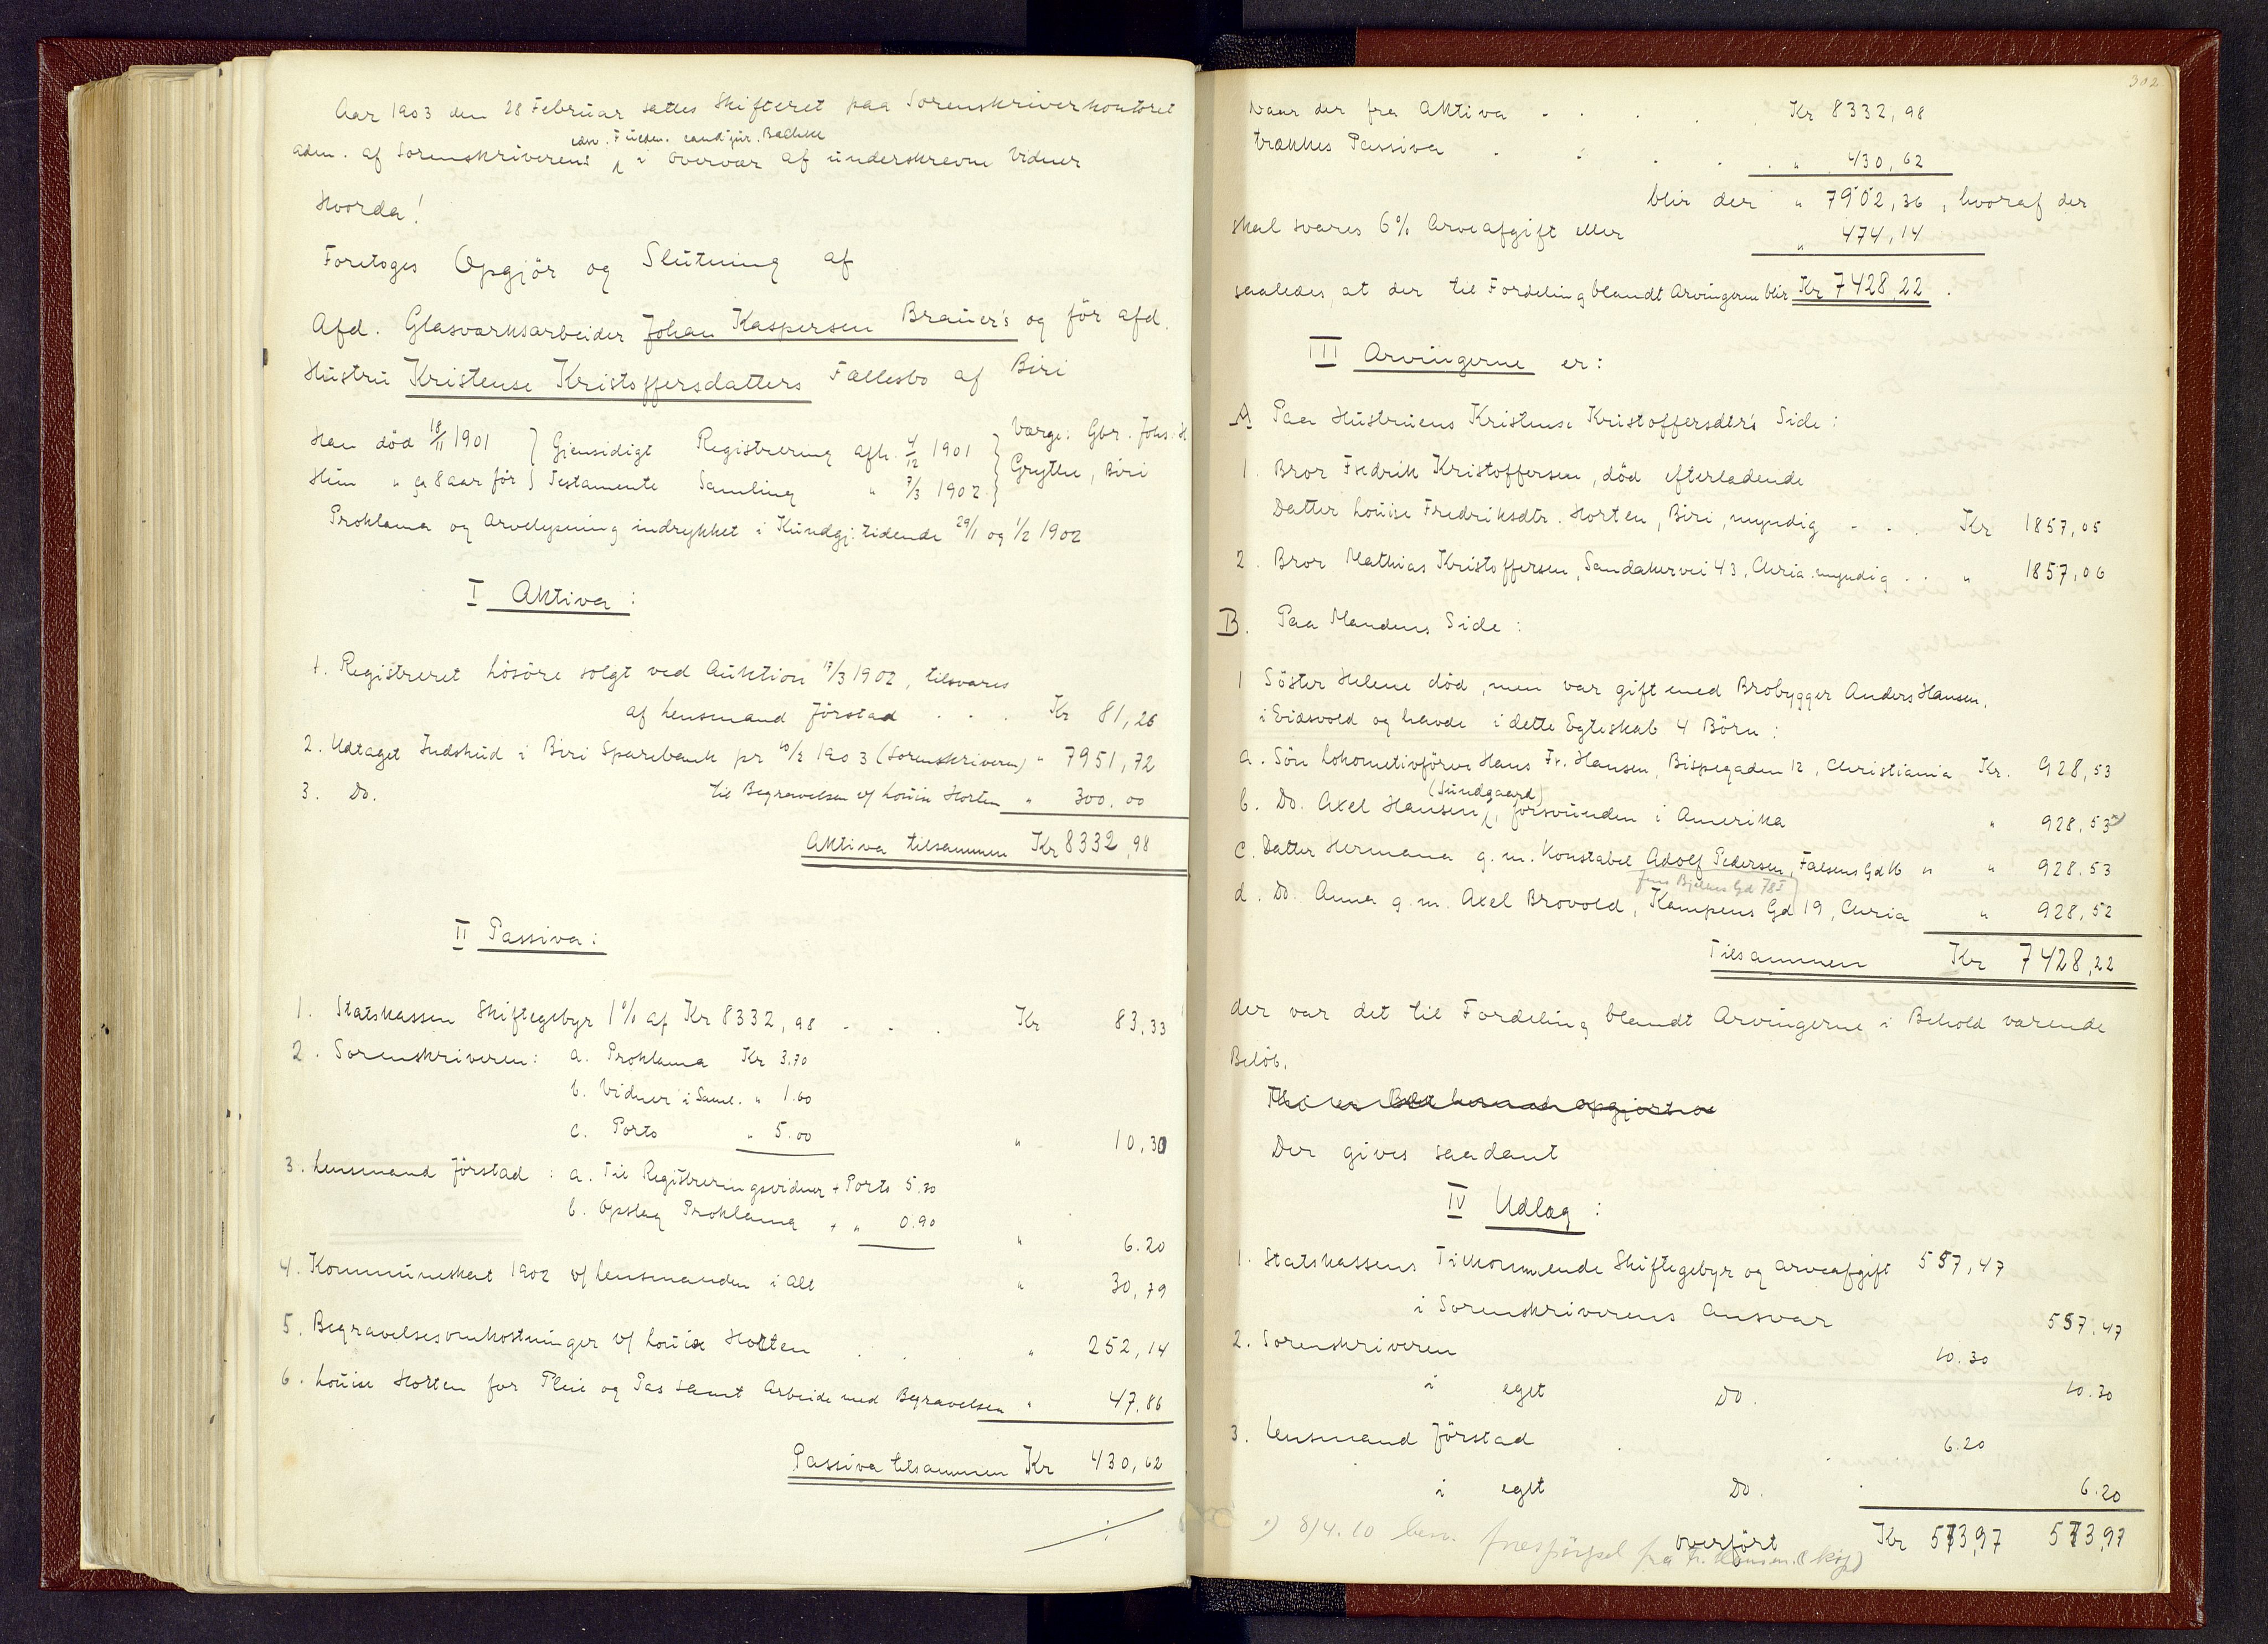 Aar 1903 den 28 Februar sattes Skifteret paa Sorenskriverkontoret
cand. jur. Balchke
adm. af Sorenskriverens i Overvær af underskrevne Vidner
Hvorda!
Foretoges Opgjör og Slutning af
Afd. Glasværksarbeider Johan Kaspersen Brauer's og för afd.
Hustru Kristense Kristoffersdatters Fællesbo af Biri
Han död 18/11 1901 } Gjensidigt Registrering afh. 4/12 1901 } Værge: Gbr. Johs. H
Hun " ca 8 aar för } Testamente Samling " 7/3 1902 } Grythe, Biri
Proklama og Arvelysning indrykket i Kundgj: tidende 29/1 og 1/2 1902
I Aktiva:
1. Registreret Lösöre solgt ved Auktion 17/3 1902, tilsvares
af Lensmand Jörstad . . . Kr 81,26
2. Udtaget Indskud i Biri Sparebank pr 10/2 1903 (Sorenskriveren) " 7951,72
3. Do. til Begravelsen v/ Louise Horten " 300.00
Aktiva tilsammen Kr 8332,98
II Passiva:
1. Statskassen Skiftegebyr 1% af Kr 8332,98 - . . Kr 83,33
2. Sorenskriveren: a. Proklama Kr 3.70
b. Vidner i Saml. " 1.60
c. Porto " 5.00 " 10,30
3. Lensmand Jörstad : a. Til Registreringsvidner + Porto 5.30
b. Opslag Proklama + " 0.90
" 6.20
4. Kommuneskat 1902 v/ Lensmanden i alt " 30,79
5. Begravelsesomkostninger v/ Louise Horten . . . " 252,14
6. Louise Horten for Pleie og Pas samt Arbeide med Begravelsen " 47,86
Passiva tilsammen Kr 430,62
302
Naar der fra Aktiva - . . . Kr 8332,98
trækkes Passiva . . . . . " 430,62
blir der " 7902,36, hvoraf der
skal svares 6% Arveafgift eller " 474,14
saaledes, at der til Fordeling blandt Arvingerne blir Kr 7428,22.
III Arvingerne er:
A Paa Hustruens Kristense Kristoffersdtr's Side:
1. Bror Fredrik Kristoffersen, död efterladende
Datter Louise Fredriksdtr. Horten, Biri, myndig - . . Kr 1857,05
2. Bror Mathias Kristoffersen, Sandakervei 43, Chria. myndig . . " 1857,06
B. Paa Mandens Side:
1 Söster Helene död, men var gift med Brobygger Anders Hansen,
i Eidsvold og havde i dette Egteskab 4 Börn:
a. Sön Lokomotivförer Hans Fr. Hansen, Bispegaden 12, Christiania Kr. 928,53
(Sundgaard)
b. Do. Axel Hansen, forsvunden i Amerika " 928,53
c. Datter Hermana g. m. Konstabel Adolf Pedersen, Falsens Gd 16 " " 928.53
Jens Bjelkes Gd 78 I
d. Do. Anna g. m. Axel Brovold, Kampens Gd 19, Chria " 928,52
Tilsammen Kr 7428,22
der var det til Fordeling blandt Arvingerne i Behold værende
Belöb.
Der gives saadant
IV Udlæg:
1. Statskassens Tilkommende Skiftegebyr og Arveafgift 557,47
i Sorenskriverens Ansvar 557,47
2. Sorenskriveren 10.30
i eget Do. 10.30
3. Lensmand Jörstad 6.20
i eget Do. 6.20
overfört Kr 573,97 573,97
8/4.10 besv. forespörgsel fra Fr. Hansen